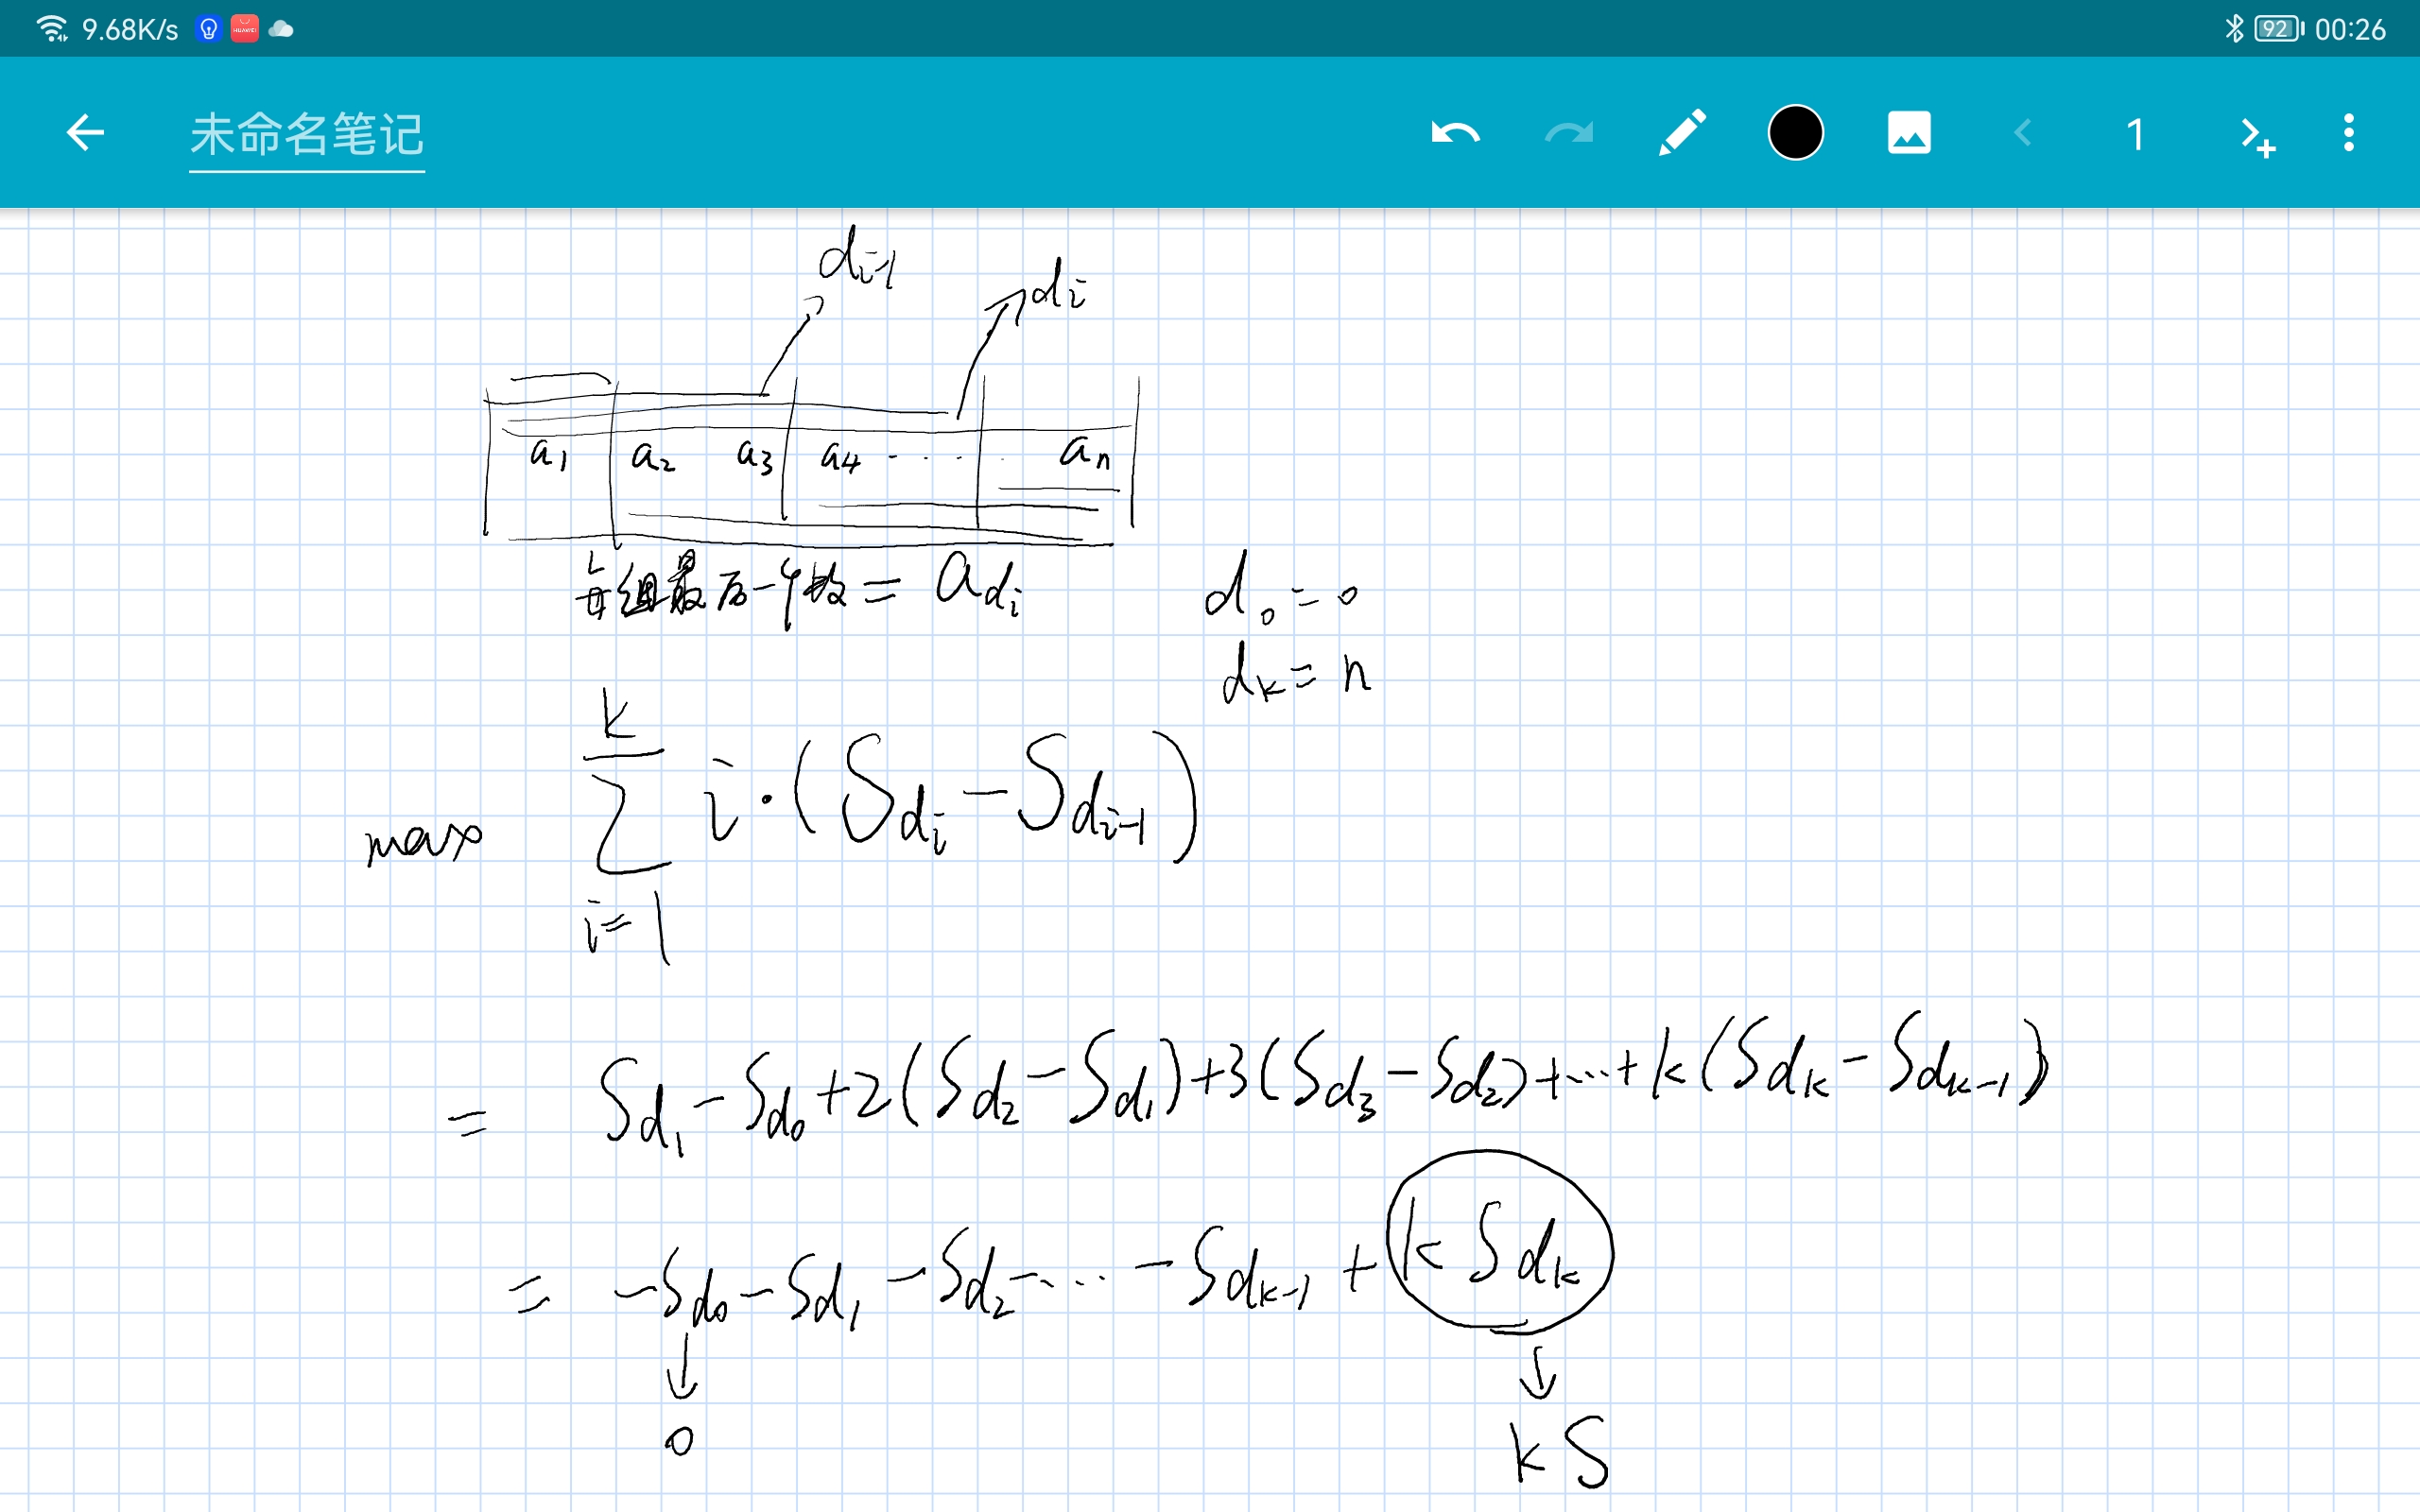 9.68K/s HUAWEI 92 00:26
未命名笔记 1
d_{i-1} d_i
a_1 a_2 a_3 a_4 ... a_n
每组最后一个数 = a_{d_i} d_0 = 0
d_k = n
max \sum_{i=1}^{k} i·(S_{d_i} - S_{d_{i-1}})
= S_{d_1} - S_{d_0} + 2(S_{d_2} - S_{d_1}) + 3(S_{d_3} - S_{d_2}) + ... + k(S_{d_k} - S_{d_{k-1}})
= -S_{d_0} - S_{d_1} - S_{d_2} - ... - S_{d_{k-1}} + k S_{d_k}
↓ ↓
0 kS